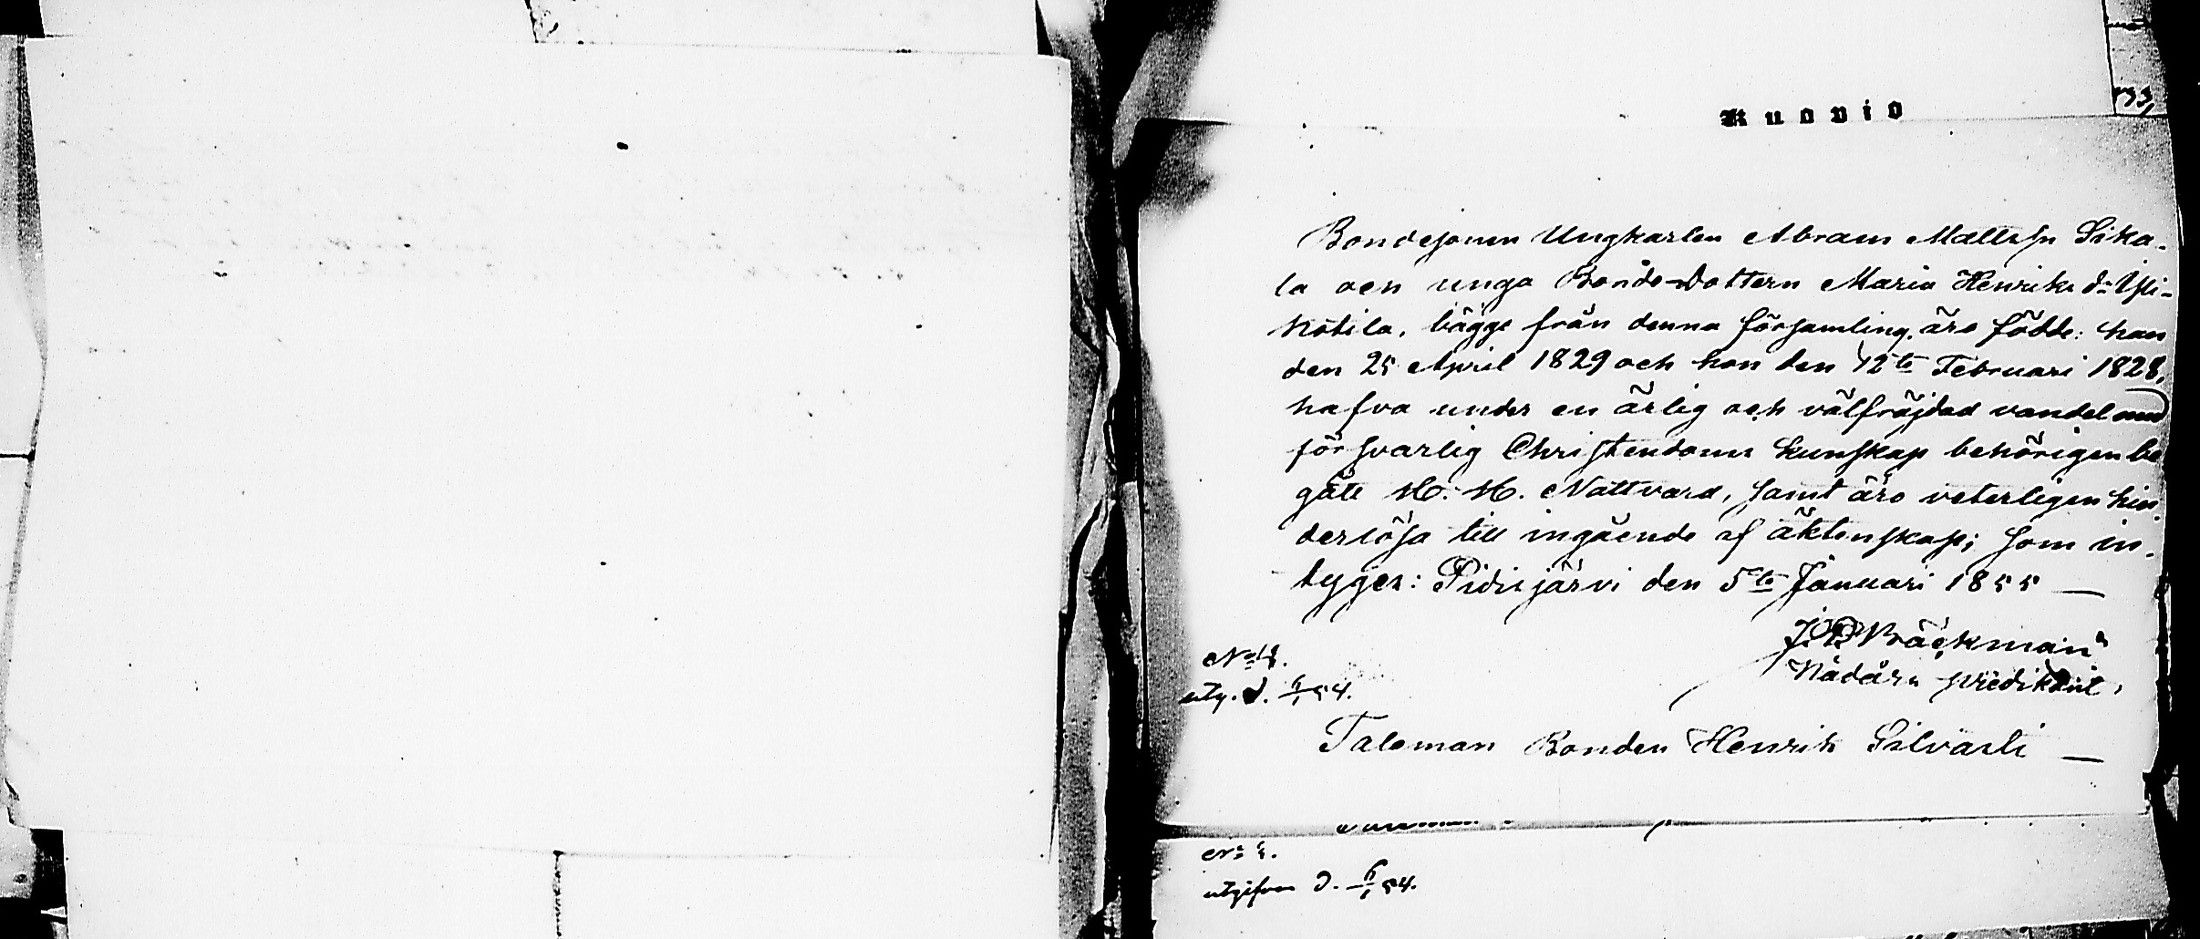 133,
Kuopio
Bondesonen Ungkarlen Abram Mattsſn Sika-
la och unga Bonde-Dottern Maria Henriks dr Yli-
kotila, bägge från denna församling, äro födde: han
den 25 April 1829 och hon den 12te Februari 1828,
hafva under en ärlig och välfräjdad vandel med
försvarlig Christendoms kunskap behörigen be
gått H. H. Nattvard, samt äro veterligen hin-
derlösa till ingående af äktenskap; som in-
tyges: Pidisjärvi den 5te Januari 1855 —
Bräckman
Nådårs predikant,
No 4.
utg. d. 6/1 54.
Taleman Bonden Henrik Silvasti —
No 4.
utgifven d. 6/1 54.